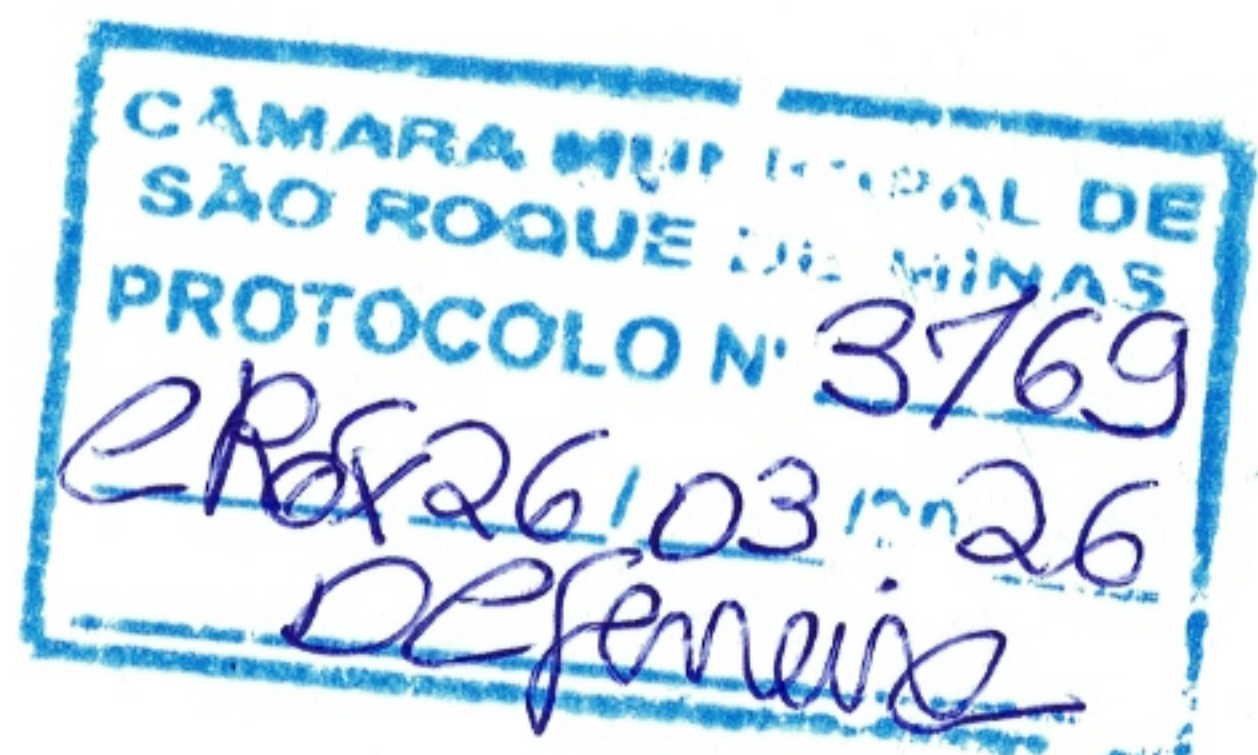 CÂMARA MUNICIPAL DE
SÃO ROQUE DE MINAS
PROTOCOLO Nº 3769
26/03/26
DCferreira